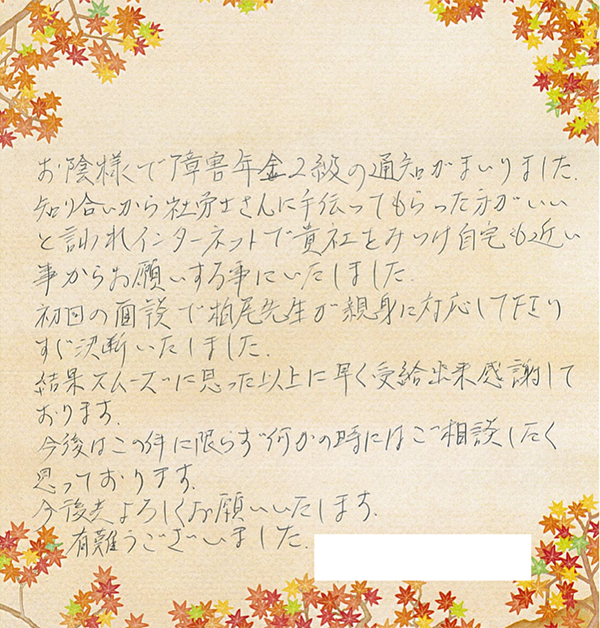 お陰様で障害年金2級の通知がまいりました.
知り合いから社労士さんに手伝ってもらった方がいい
と言われインターネットで貴社をみつけ自宅も近い
事からお願いする事にいたしました.
初回の面談で柏尾先生が親身に対応して下さり
すぐ決断いたしました.
結果スムーズに思った以上に早く受給出来感謝して
おります.
今後はこの件に限らず何かの時にはご相談したく
思っております.
今後共よろしくお願いいたします.
有難うございました.